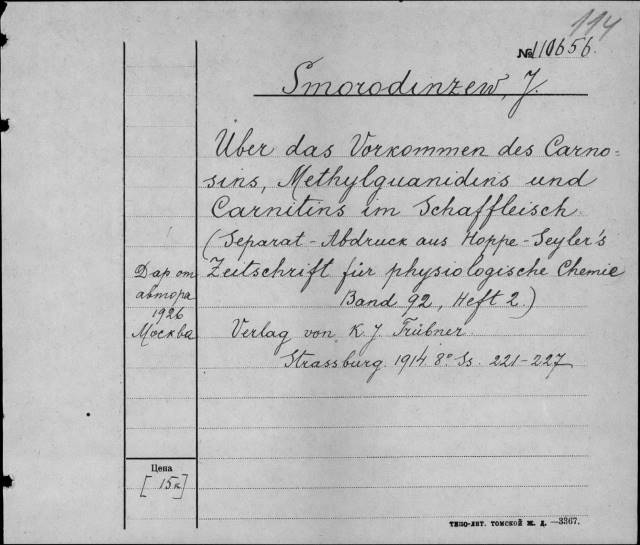 114
№ 110656.
Smorodinzew, J.
Über das Vorkommen des Carno=
sins, Methylguanidins und
Carnitins im Schaffleisch
(Separat-Abdruck aus Hoppe-Seyler's
Zeitschrift für physiologische Chemie
Band 92, Heft 2.)
Verlag von K. J. Trübner.
Strassburg. 1914. 8° Ss. 221-227
Дар от
автора
1926
Москва
Цена
[15к]
ТИПО-ЛИТ. ТОМСКОЙ Ж. Д. —3367.